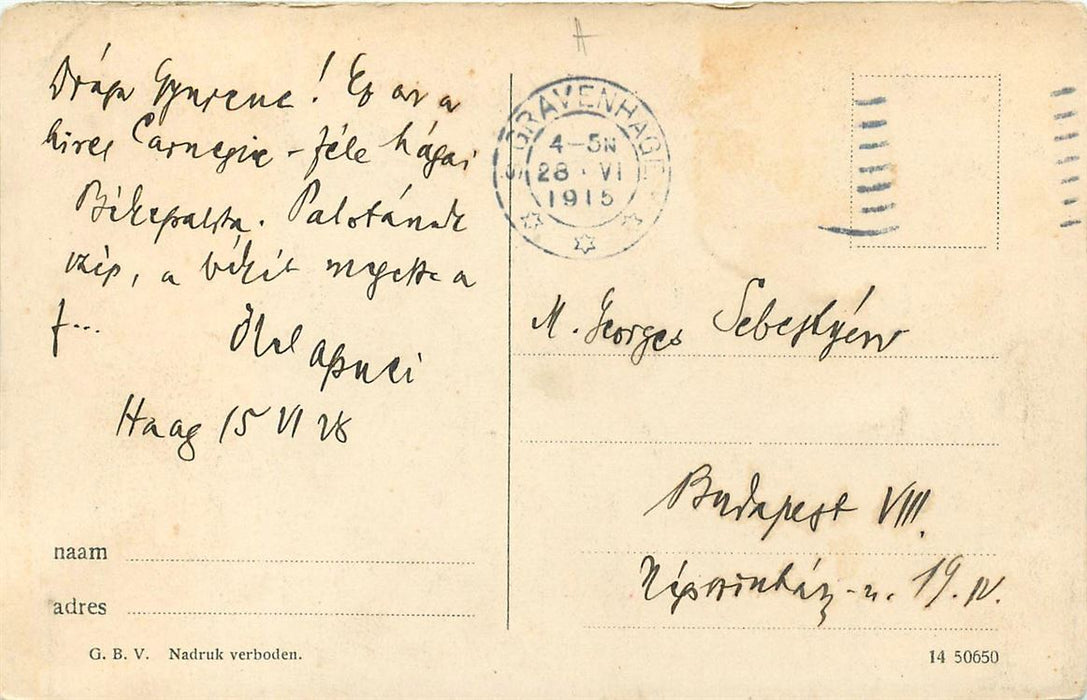 Drága Gyurene! Ez az a
híres Carnegie-féle hágai
Békepalota. Palotának
szép, a békét megette a
f...
Ölel apuci
Haag 15 VI 28
naam
adres
G. B. V. Nadruk verboden.
'S GRAVENHAGE
4-5N
28 · VI
1915
M. Georges Sebestyén
Budapest VIII.
Népszinház-u. 19. IV.
14 50650